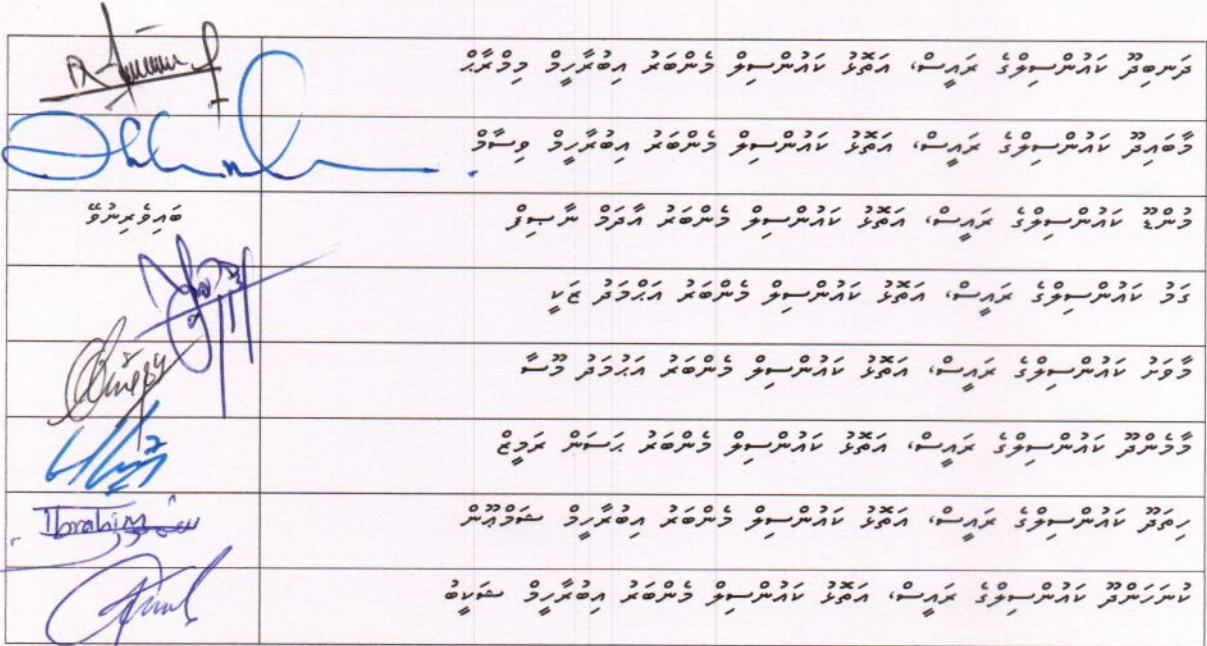 ދަނބިދޫ ކައުންސިލްގެ ރައީސް، އަތޮޅު ކައުންސިލް މެންބަރު އިބްރާހީމް މިމްރާޙް
މާބައިދޫ ކައުންސިލްގެ ރައީސް، އަތޮޅު ކައުންސިލް މެންބަރު އިބްރާހީމް ވިސާމް
މުންޑޫ ކައުންސިލްގެ ރައީސް، އަތޮޅު ކައުންސިލް މެންބަރު އާދަމް ނާޞިފް
ބައިވެރިނުވޭ
ގަމު ކައުންސިލްގެ ރައީސް، އަތޮޅު ކައުންސިލް މެންބަރު އަޙްމަދު ޒަކީ
މާވަށު ކައުންސިލްގެ ރައީސް، އަތޮޅު ކައުންސިލް މެންބަރު އަޙުމަދު މޫސާ
މާމެންދޫ ކައުންސިލްގެ ރައީސް، އަތޮޅު ކައުންސިލް މެންބަރު ޙަސަން ރަމީޒް
ހިތަދޫ ކައުންސިލްގެ ރައީސް، އަތޮޅު ކައުންސިލް މެންބަރު އިބްރާހީމް ޝަމްޢޫން
Ibrahim
ކުނަހަންދޫ ކައުންސިލްގެ ރައީސް، އަތޮޅު ކައުންސިލް މެންބަރު އިބްރާހީމް ޝަކީބު